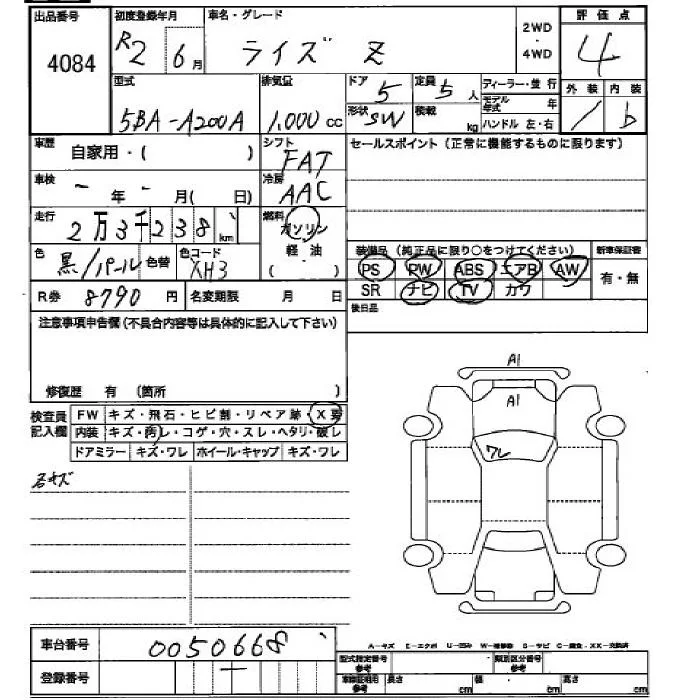 出品番号 初度登録年月 車名・グレード 2WD・4WD 評価点
4084 R2 6月 ライズ Z 4
型式 排気量 ドア 5 定員 5人 ディーラー・並行 外装 内装
5BA-A200A 1,000cc 形状 SW 積載 kg モデル年式 年 1 b
ハンドル 左・右
車歴 自家用・( ) シフト FAT セールスポイント(正常に機能するものに限ります)
車検 - 年 - 月( 日) 冷房 AAC
走行 2万3千238km 燃料 ガソリン
軽油
( )
色 黒/パール 色替 色コード XH3
装備品(純正品に限り○をつけてください) 新車保証書
PS PW ABS エアB AW 有・無
SR ナビ TV カワ
R券 8790円 名変期限 月 日 後日品
注意事項申告欄(不具合内容等は具体的に記入して下さい)
修復歴 有 (箇所 )
検査員記入欄 FW キズ・飛石・ヒビ割・リペア跡・X要
内装 キズ・汚レ・コゲ・穴・スレ・ヘタリ・破レ
ドアミラー キズ・ワレ ホイール・キャップ キズ・ワレ
A1
A1
ワレ
若キズ
車台番号 0050668
登録番号 -
A-キズ E-エクボ U-凹み W-補修跡 S-サビ C-腐食 XX-交換済
型式指定番号 参考 類別区分番号 参考
車庫証明用 参考 長さ cm 幅 cm 高さ cm